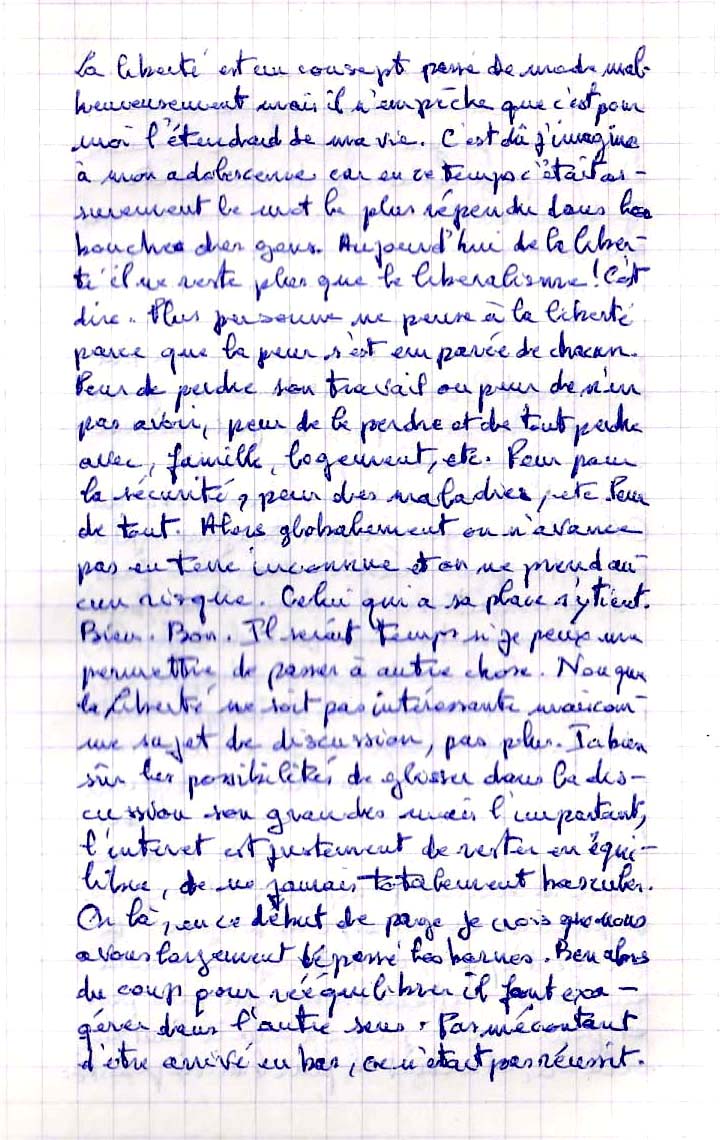 La liberté est un consept passé de mode mal-
heureusement mais il n'empêche que c'est pour
moi l'étendard de ma vie. C'est dû j'imagine
à mon adolescence car en ce temps c'était as-
surement le mot le plus répendu dans les
bouches des gens. Aujourd'hui de la liber-
té il ne reste plus que le liberalisme ! C'est
dire. Plus personne ne pense à la liberté
parce que la peur s'est emparée de chacun.
Peur de perdre son travail ou peur de n'en
pas avoir, peur de le perdre et de tout perdre
avec, famille, logement, etc. Peur pour
la sécurité, peur des maladies, etc. Peur
de tout. Alors globalement on n'avance
pas en terre inconnue et on ne prend au-
cun risque. Celui qui a sa place s'y tient.
Bien. Bon. Il serait temps si je peux me
permettre de passer à autre chose. Non que
la Liberté ne soit pas intéressante mais com-
me sujet de discussion, pas plus. Ta bien
sûr les possibilités de glisser dans la dis-
cussion son grandes mais l'important,
l'interet est justement de rester en équi-
libre, de ne jamais totalement basculer.
Or là, en ce début de page je crois que nous
avons largement dépassé les bornes. Ben alors
du coup pour rééquilibrer il faut exa-
gérer dans l'autre sens. Pas mécontant
d'être arrivé en bas, ce n'était pas réussit.